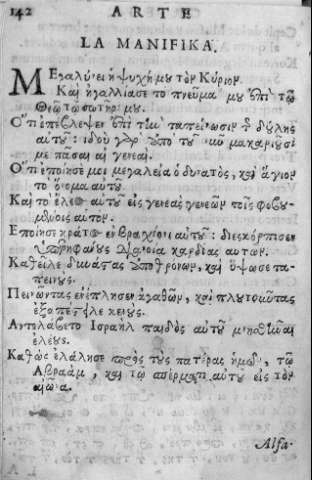 142 ARTE
LA MANIFIKA.
Μεγαλύνει ἡ ψυχή μου τὸν Κύριον.
Καὶ ἠγαλλίασε το πνεῦμα μου ἐπὶ τῷ
Θεῷ τῷ σωτῆρι μου.
Ὅτι ἐπέβλεψεν ἐπὶ τὴν ταπείνωσιν τῆς δούλης
αὐτοῦ: ἰδοὺ γὰρ ἀπὸ του νῦν μακαριοῦσί
με πᾶσαι αἱ γενεαί.
Ὅτι ἐποίησέ μοι μεγαλεῖα ὁ δυνατὸς, καὶ ἅγιον
το ὄνομα αυτοῦ.
Καὶ το ἔλεος αυτοῦ εἰς γενεας γενεῶν τοῖς φοβου-
μένοις αυτον.
Εποίησε κράτος εν βραχίονι αὑτοῦ: διεσκόρπισεν
ὑπερηφάνους διανοίᾳ καρδίας αυτων.
Καθεῖλε δυνάστας ἀπὸ θρόνων, καὶ ὕψωσε τα-
πεινους.
Πεινῶντας ενέπλησεν ἀγαθῶν, καὶ πλουτοῦντας
ἐξαπέστειλε κενούς.
Αντελάβετο Ἰσραὴλ παιδὸς αυτοῦ μνησθῆναι
ἐλέους.
Καθὼς ἐλάλησε πρὸς τους πατέρας ἡμῶν, τῷ
Αβραάμ, καὶ τῷ σπέρματι αυτοῦ εἰς τὸν
αἰῶνα.
Alfa-